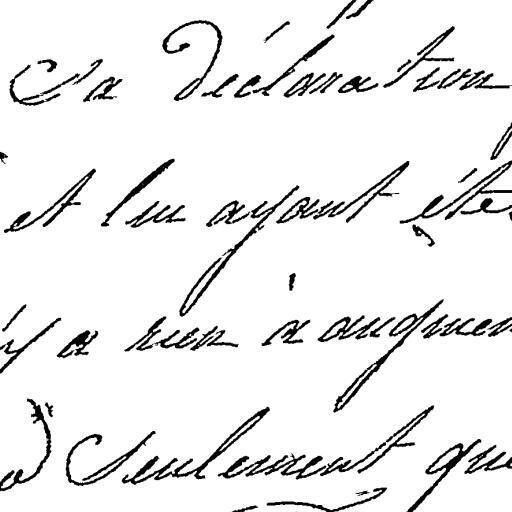 Sa déclaration
et lui ayant été
y a rien à augmen
Seulement que